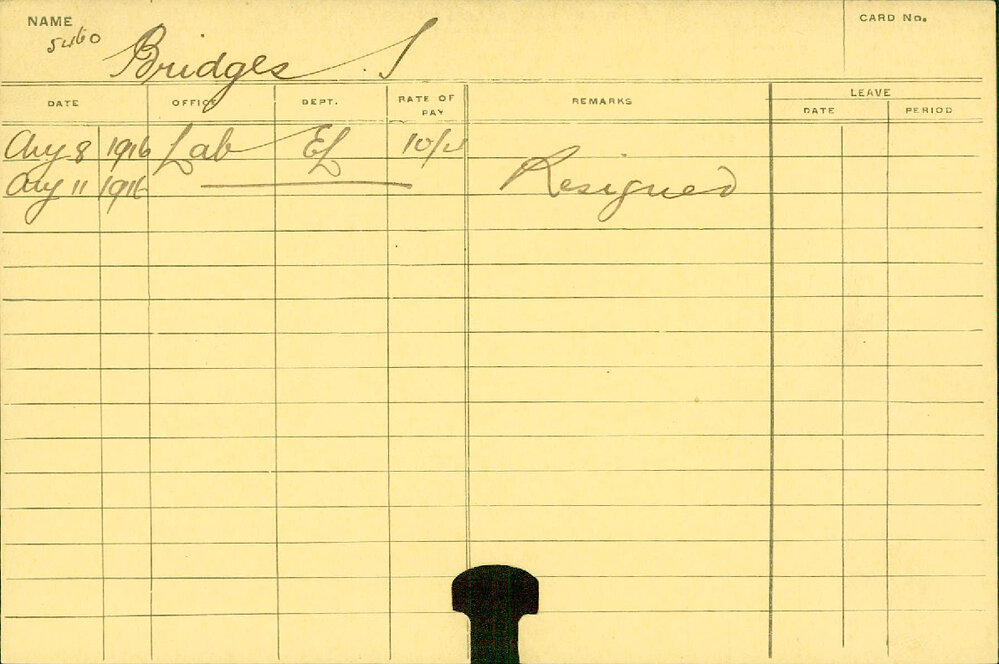 NAME CARD No.
5460 Bridges
DATE OFFICE DEPT. RATE OF PAY REMARKS LEAVE
DATE PERIOD
Aug 8 1916 Lab EL
Aug 11 1916 Resigned